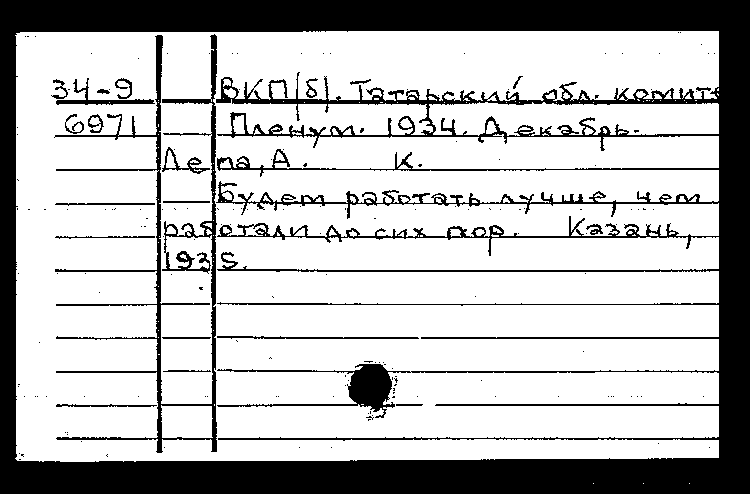 34-9 ВКП(б). Татарский обл. комите
6971 Пленум. 1934. Декабрь.
Лепа, А. К.
Будем работать лучше, чем
работали до сих пор. Казань,
1935.